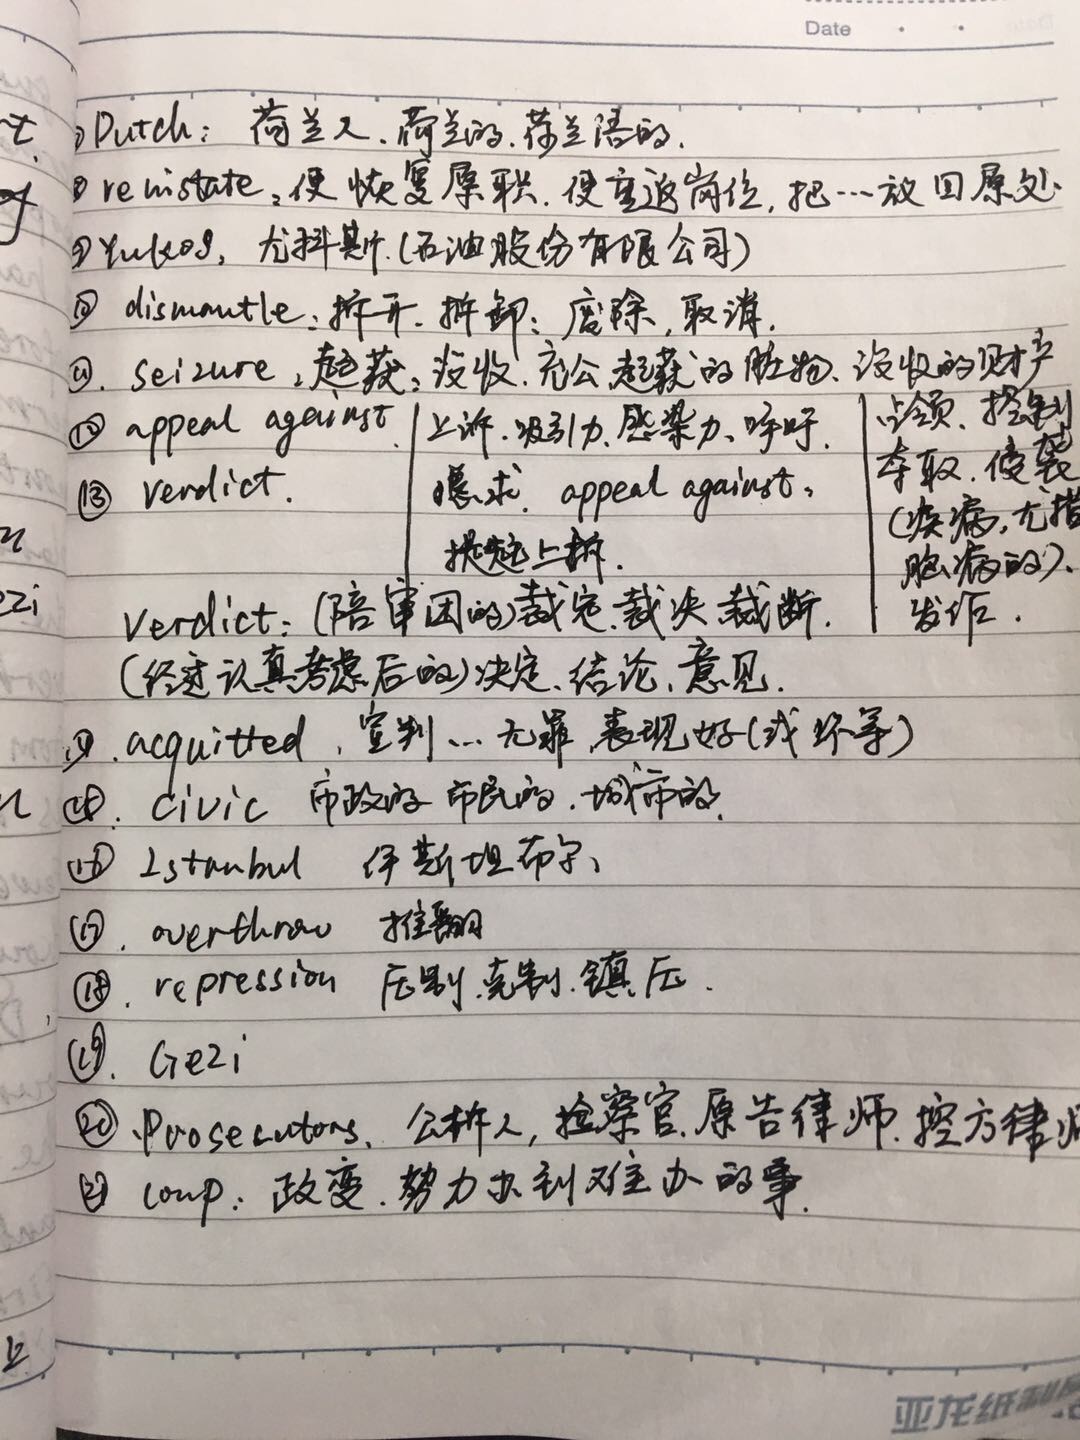 Date
Dutch: 荷兰人、荷兰的、荷兰语的.
reinstate: 使恢复原职、使重返岗位, 把…放回原处
Yukos, 尤科斯.(石油股份有限公司)
⑩ dismantle: 拆开、拆卸; 废除, 取消.
⑪. seizure, 起获; 没收、充公、起获的脏物、没收的财产
占领、控制
夺取、侵袭
(疾病, 尤指
脑病的)、
发作.
⑫ appeal against. 上诉、吸引力、感染力、呼吁.
恳求. appeal against:
提起上诉.
⑬ verdict.
Verdict: (陪审团的)裁定、裁决、裁断.
(经过认真考虑后的)决定、结论、意见.
⑭. acquitted、宣判…无罪, 表现好(或坏等)
⑮. civic 市政的 市民的、城市的
⑯ Istanbul 伊斯坦布尔、
⑰. overthrow 推翻
⑱. repression 压制、克制、镇压.
⑲. Gezi
⑳. Prosecutors、公诉人, 检察官、原告律师、控方律师
㉑ coup: 政变、努力办到难办的事.
亚龙纸制